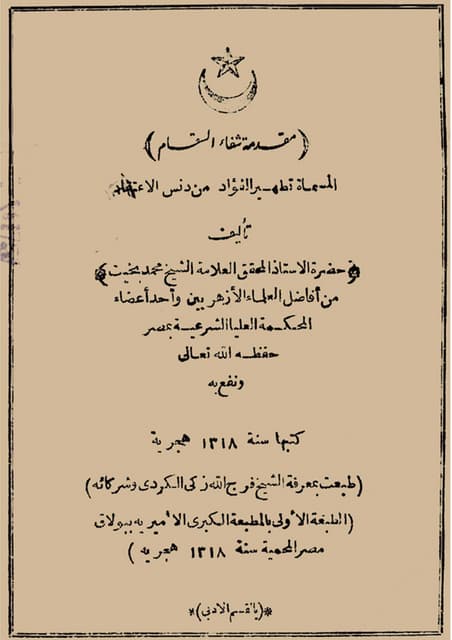 (مقدمة شفاء السقام)
المسماة تطهير الفؤاد من دنس الاعتقاد
تأليف
حضرة الاستاذ المحقق العلامة الشيخ محمد بخيت
من أفاضل العلماء الأزهريين وأحد أعضاء
المحكمة العليا الشرعية بمصر
حفظه الله تعالى
ونفع به
كتبها سنة ١٣١٨ هجرية
(طبعت بمعرفة الشيخ فرج الله زكى الكردى وشركائه)
(الطبعة الأولى بالمطبعة الكبرى الأميرية ببولاق
مصر المحمية سنة ١٣١٨ هجرية)
*(بالقسم الادبى)*